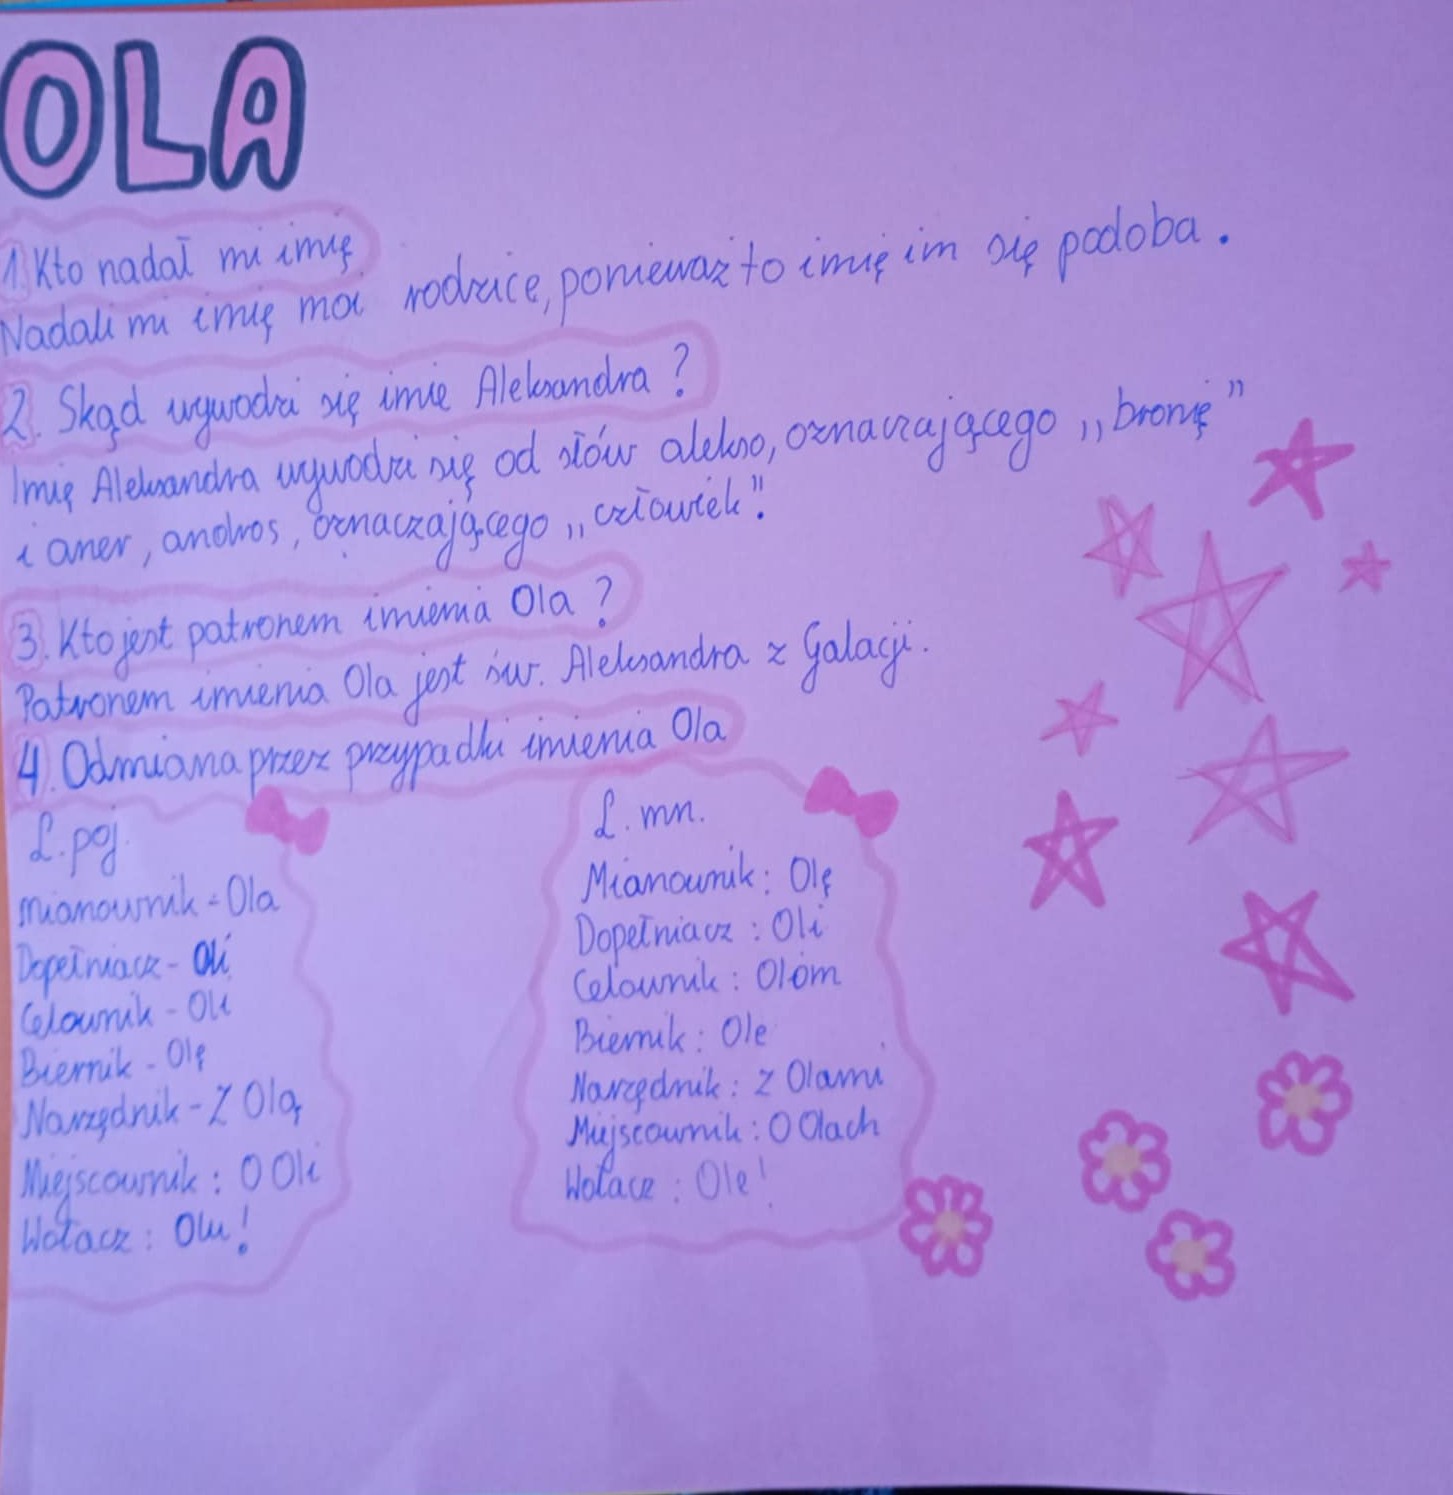 OLA
1. Kto nadał mi imię
Nadali mi imię moi rodzice, ponieważ to imię im się podoba.
2. Skąd wywodzi się imie Aleksandra ?
Imię Aleksandra wywodzi się od słów alekso, oznaczającego ,, bronię"
i aner, andros, oznaczającego ,, człowiek".
3. Kto jest patronem imienia Ola ?
Patronem imienia Ola jest św. Aleksandra z Galacji.
4. Odmiana przez przypadki imienia Ola
L. poj.
Mianownik - Ola
Dopełniacz - Oli
Celownik - Oli
Biernik - Olę
Narzędnik - Z Olą
Miejscownik : O Oli
Wołacz : Olu!
L. mn.
Mianownik : Olę
Dopełniacz : Oli
Celownik : Olom
Biernik : Ole
Narzędnik : Z Olami
Miejscownik : O Olach
Wołacz : Ole!